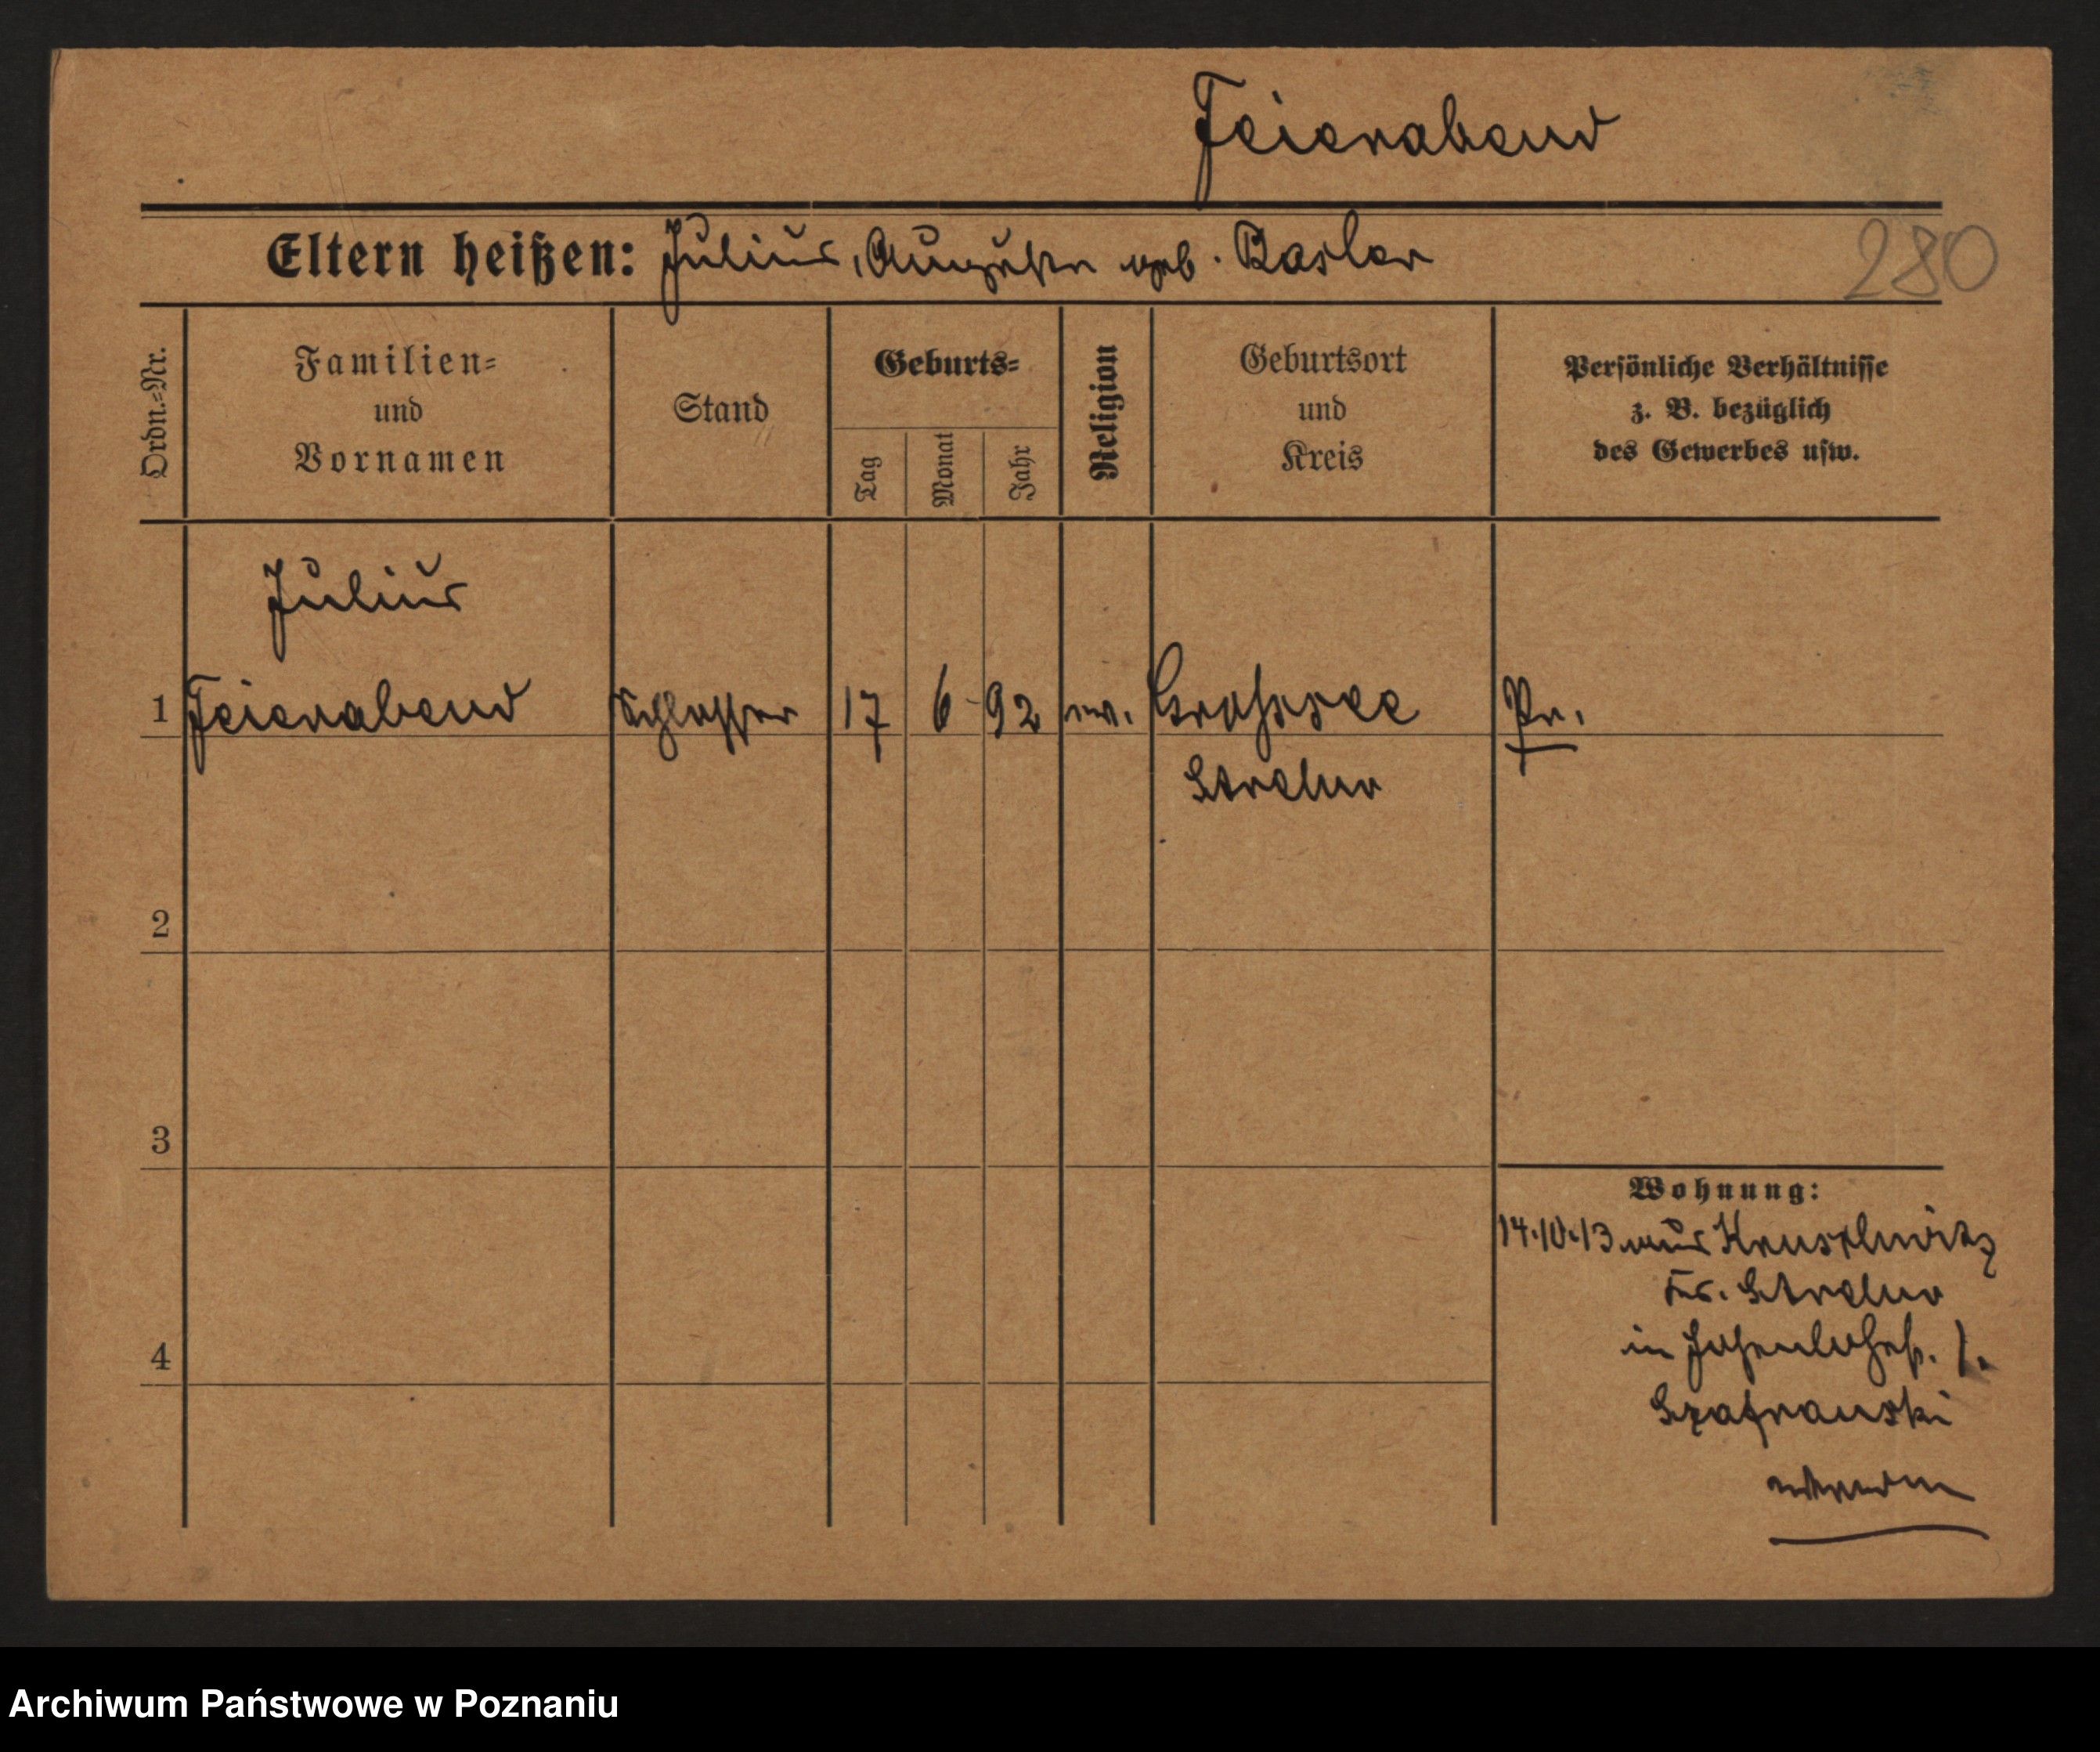 Feierabend
Eltern heißen: Julius, Auguste geb. Basler
280
Ordn.=Nr.
Familien=
und
Vornamen
Stand
Geburts=
Tag
Monat
Jahr
Religion
Geburtsort
und
Kreis
Persönliche Verhältnisse
z. B. bezüglich
des Gewerbes usw.
Julius
1 Feierabend Schlosser 17 6 92 ev. Grosssee Pr.
Strelno
2
3
4
Wohnung:
14.10.13 aus Kruschwitz
Kr. Strelno
in Hohenlohestr. 1.
Szafranski
Archiwum Państwowe w Poznaniu